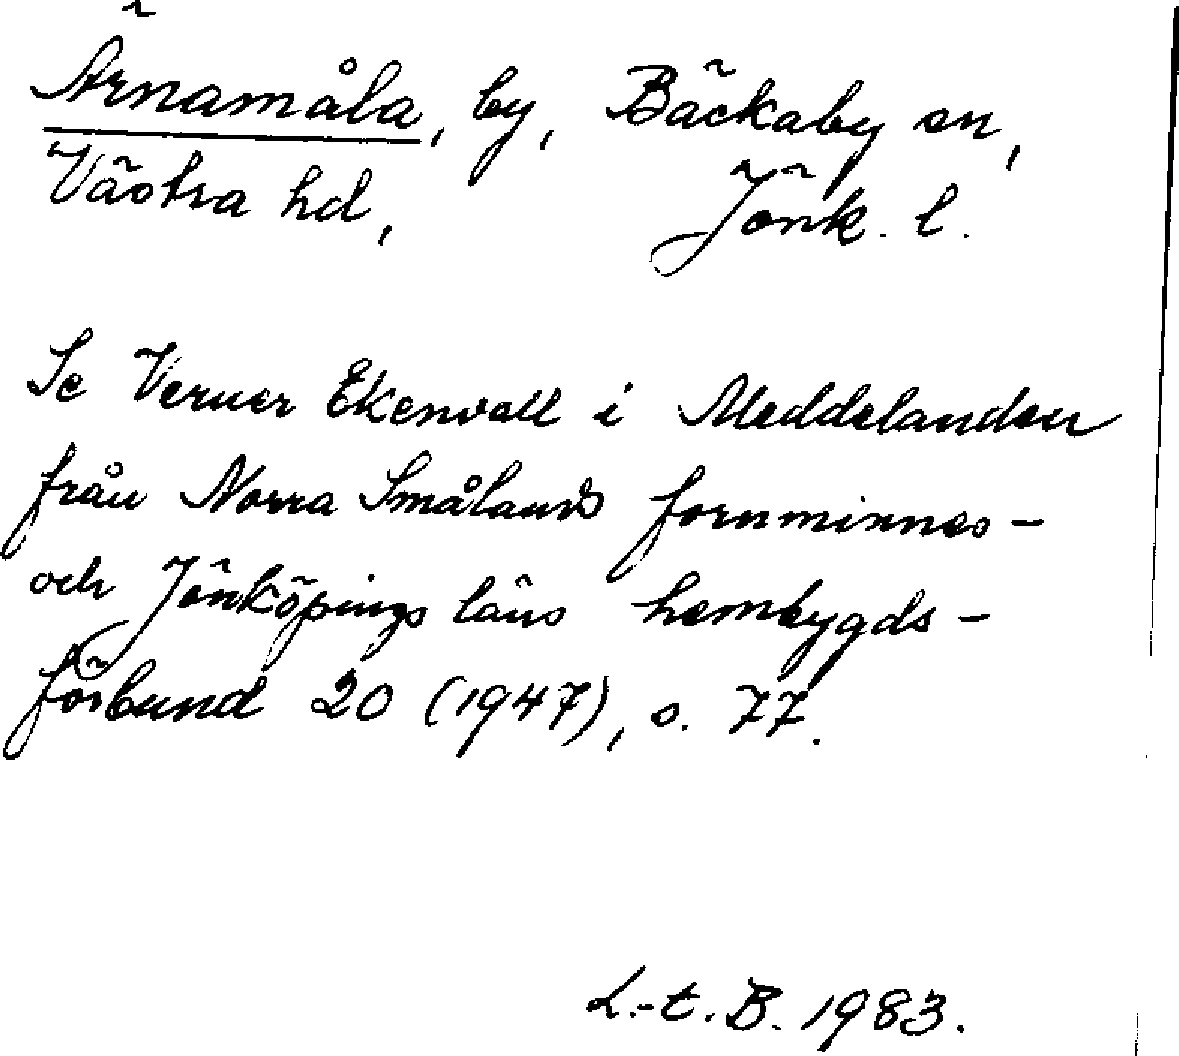 Ärnamåla, by, Bäckaby sn,
Västra hd, Jönk. l.
Se Verner Ekenvall i Meddelanden
från Norra Smålands fornminnes-
och Jönköpings läns hembygds-
förbund 20 (1947), s. 77.
L.-t. B. 1983.